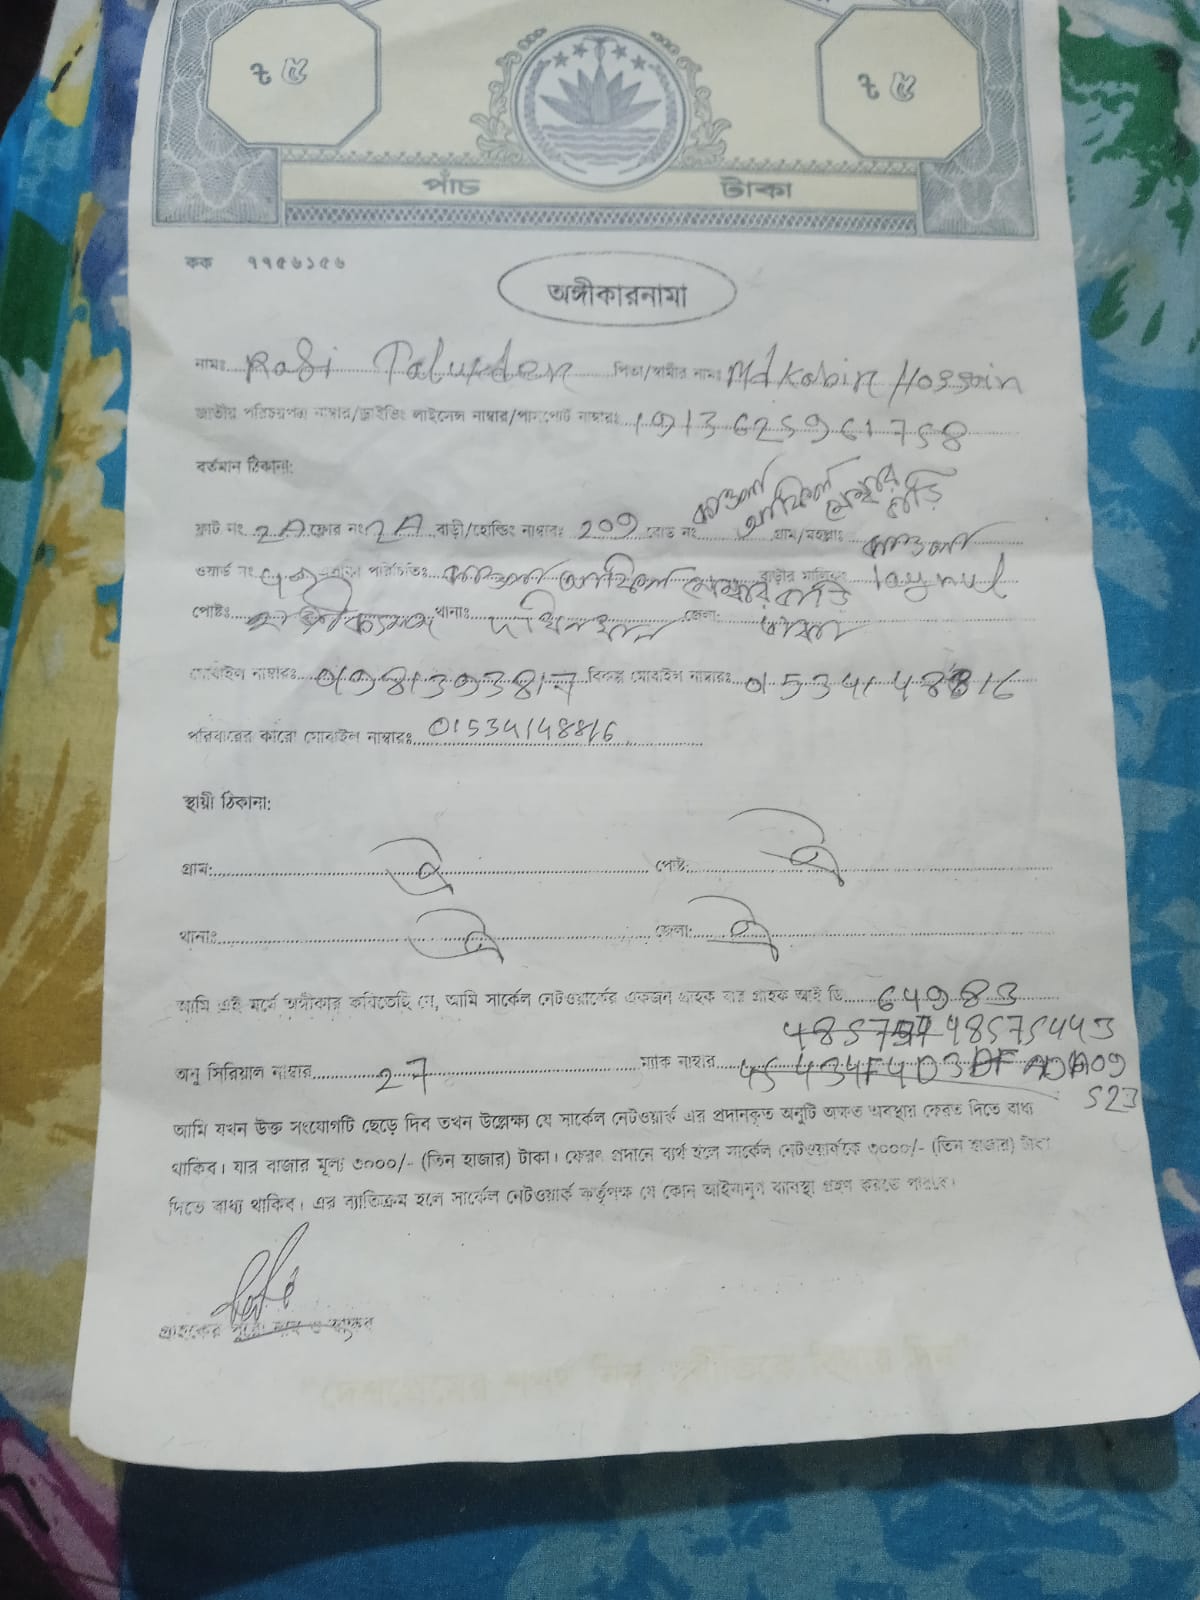 ৳ ৫ ৳ ৫
পাঁচ টাকা
কক ৭৭৫৬১৫৬
অঙ্গীকারনামা
নামঃ Rafi Talukder পিতা/স্বামীর নামঃ Md Kabir Hossain
জাতীয় পরিচয়পত্র নাম্বার/ড্রাইভিং লাইসেন্স নাম্বার/পাসপোর্ট নাম্বারঃ 1913625961758
বর্তমান ঠিকানা:
কাওলা আফিল মেম্বার বাড়ি
ফ্লাট নং 2A ফ্লোর নং 2A বাড়ী/হোল্ডিং নাম্বারঃ 209 রোড নং গ্রাম/মহল্লাঃ কাওলা
ওয়ার্ড নং পরিচিতিঃ কাওলা আফিল মেম্বার বাড়ি বাড়ীর মালিকঃ
পোষ্টঃ থানাঃ দক্ষিনখান জেলা: ঢাকা
মোবাইল নাম্বারঃ 01981393817 বিকল্প মোবাইল নাম্বারঃ 01534148816
পরিবারের কারো মোবাইল নাম্বারঃ 01534148816
স্থায়ী ঠিকানা:
গ্রাম: ঐ পোষ্ট: ঐ
থানাঃ ঐ জেলা: ঐ
আমি এই মর্মে অঙ্গীকার করিতেছি যে, আমি সার্কেল নেটওয়ার্কের একজন গ্রাহক যার গ্রাহক আই ডি 64983
48575443
অনু সিরিয়াল নাম্বার 27 ম্যাক নাম্বার
আমি যখন উক্ত সংযোগটি ছেড়ে দিব তখন উল্লেক্ষ্য যে সার্কেল নেটওয়ার্ক এর প্রদানকৃত অনুটি অক্ষত অবস্থায় ফেরত দিতে বাধ্য
থাকিব। যার বাজার মূল্য ৩০০০/- (তিন হাজার) টাকা। ফেরৎ প্রদানে ব্যর্থ হলে সার্কেল নেটওয়ার্ককে ৩০০০/- (তিন হাজার) টাকা
দিতে বাধ্য থাকিব। এর ব্যাতিক্রম হলে সার্কেল নেটওয়ার্ক কর্তৃপক্ষ যে কোন আইনানুগ ব্যাবস্থা গ্রহণ করতে পারবে।
Rafi
গ্রাহকের পুরো নাম ও স্বাক্ষর